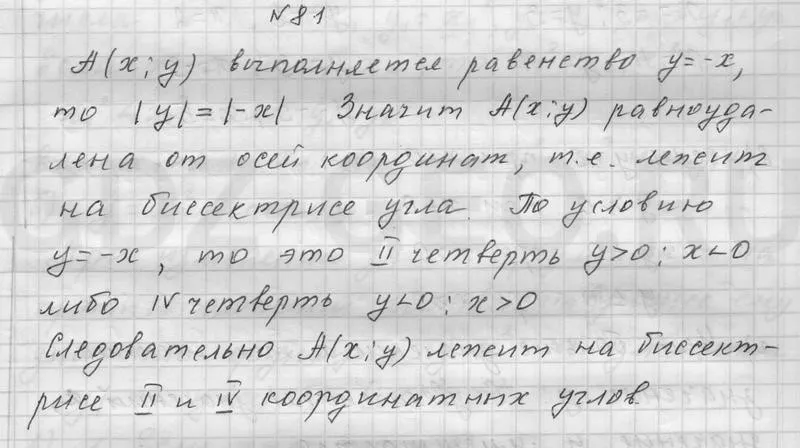 №81
A(x; y) выполняется равенство y=-x,
то |y|=|-x| Значит A(x; y) равноуда-
лена от осей координат, т.е. лежит
на биссектрисе угла. По условию
y=-x, то это II четверть y>0; x<0
либо IV четверть y<0; x>0
Следовательно A(x; y) лежит на биссект-
рисе II и IV координатных углов